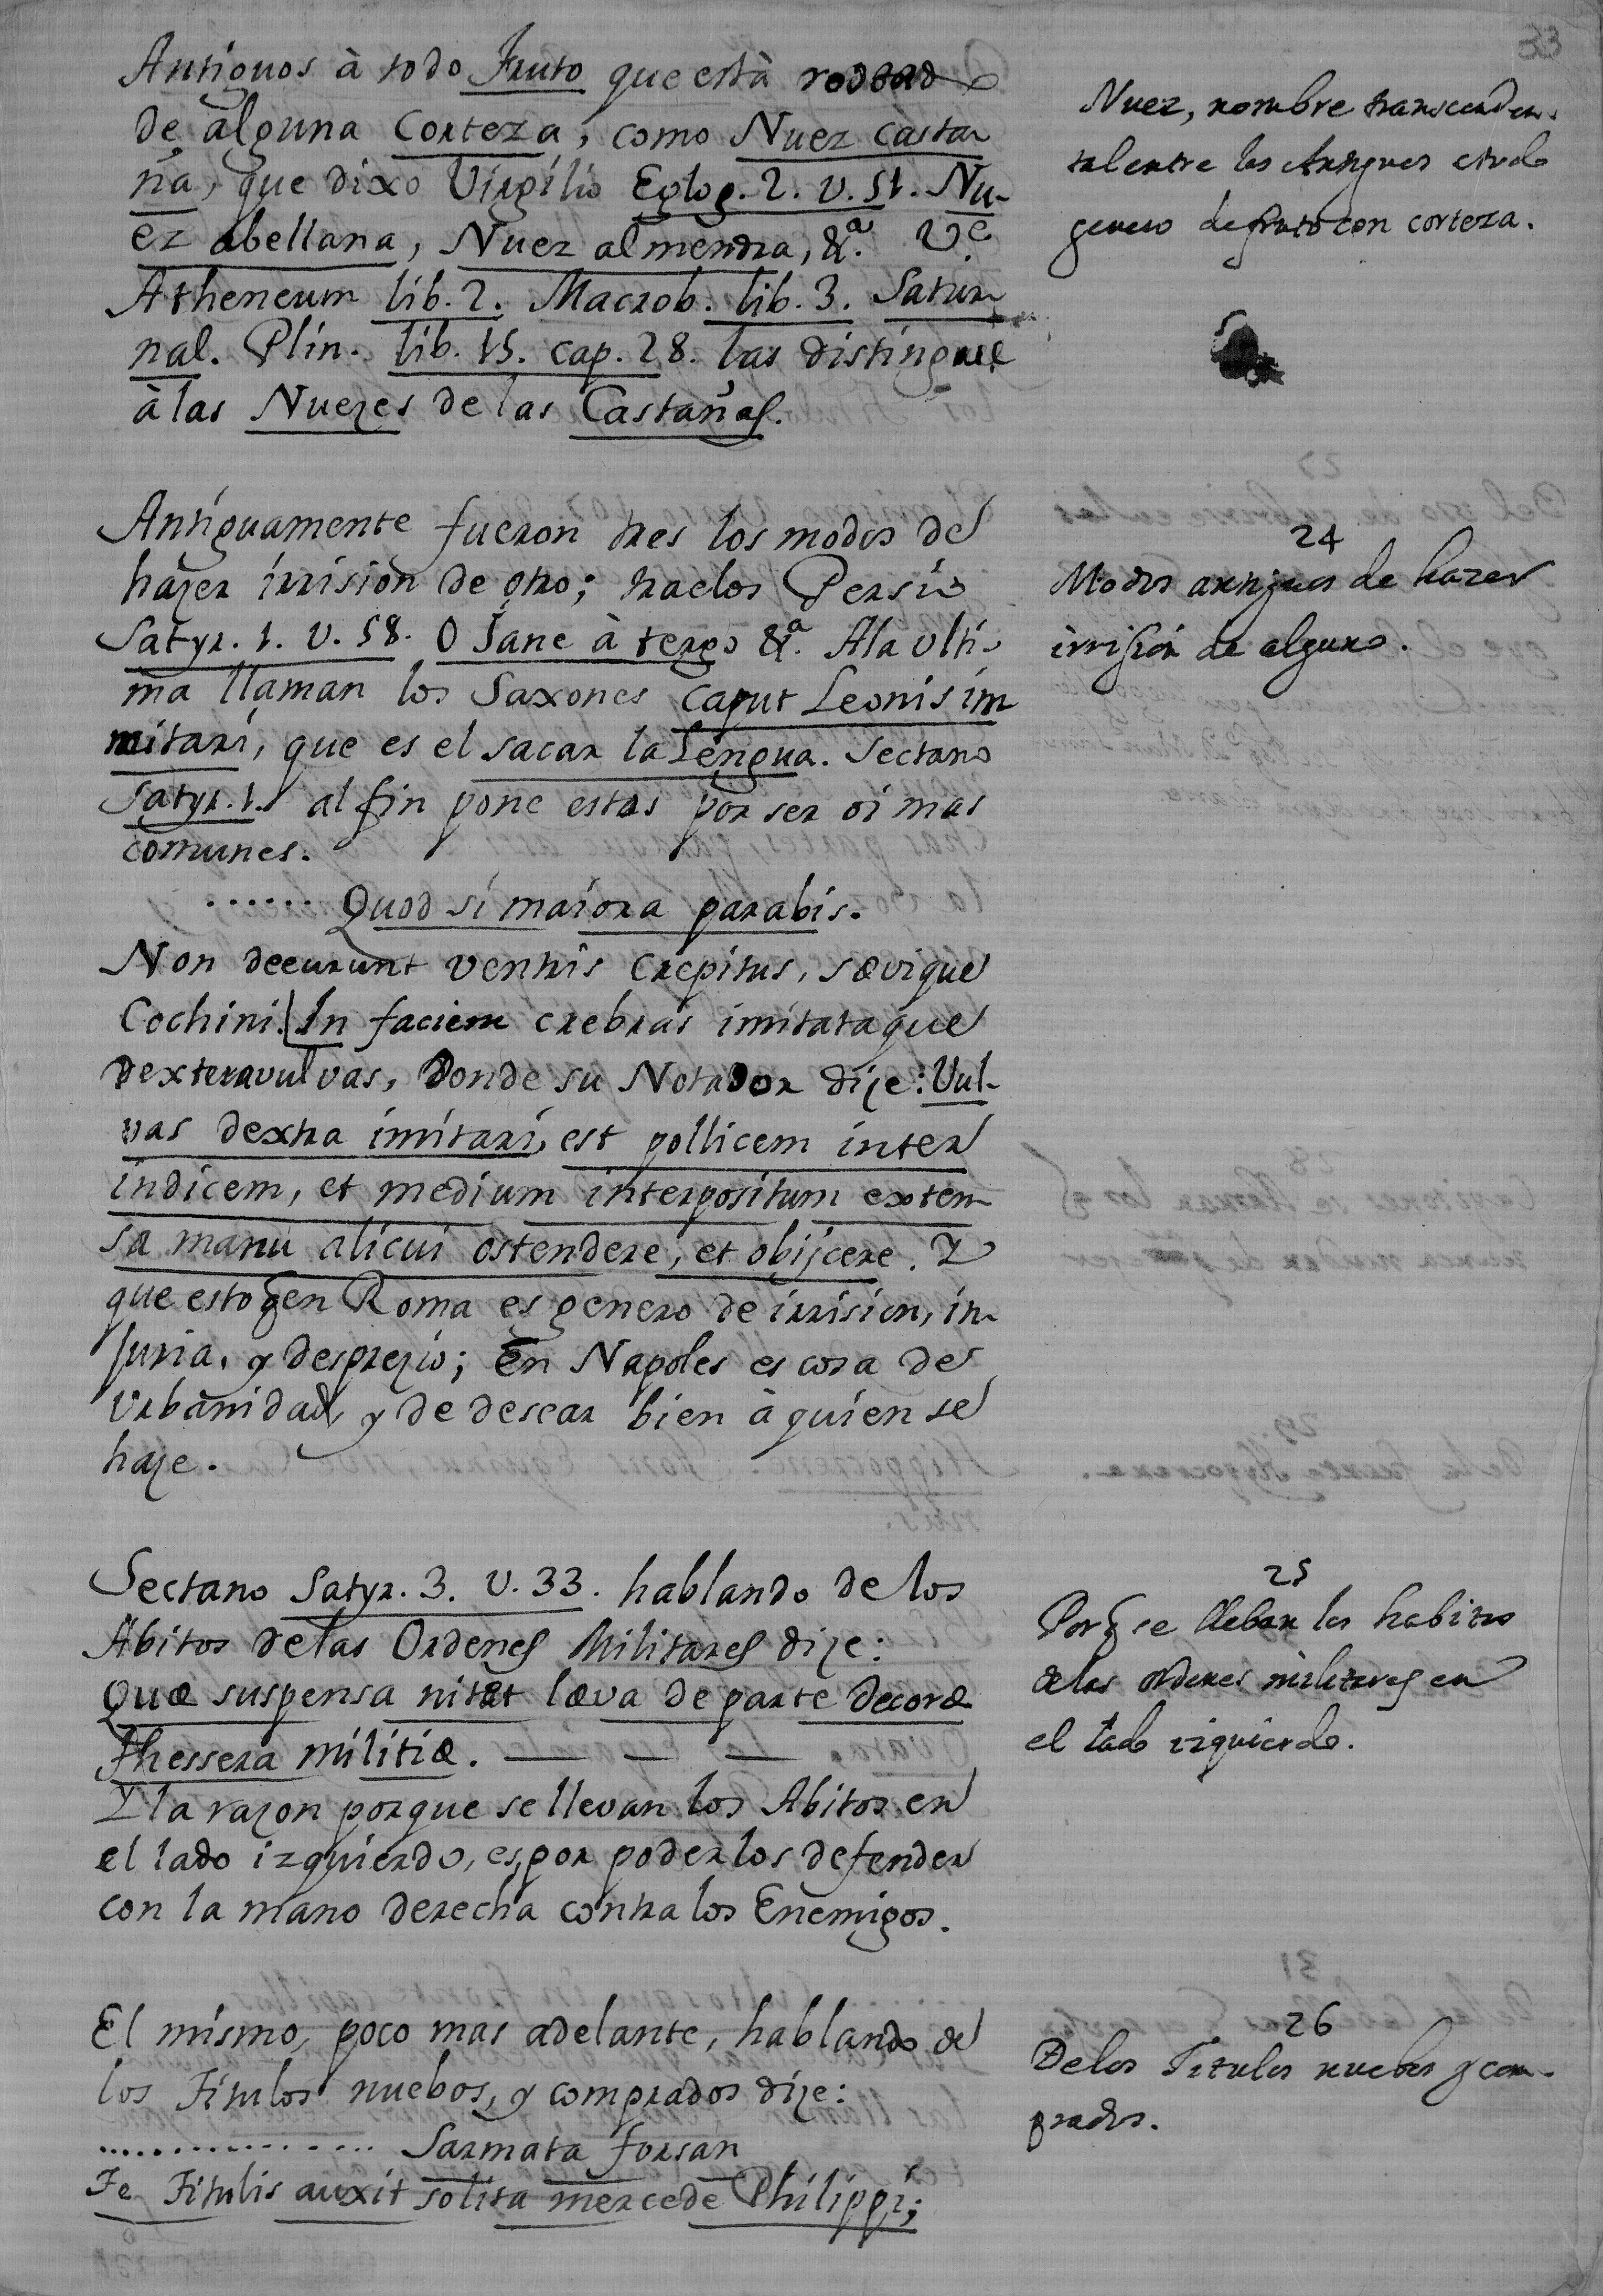 33
Antiguos à todo Fruto que està rodead
de alguna Corteza, como Nuez casta
ña, que dixo Virgilio Eglog. 2. v. 51. Nu-
ez abellana, Nuez almendra, &ª. Vᵉ.
Atheneum lib. 2. Macrob. lib. 3. Satur
nal. Plin. lib. 15. cap. 28. las distingue
à las Nuezes de las Castañas.
Nuez, nombre transcenden-
tal entre los Antiguos a todo
genero de fruto con corteza.
Antiguamente fueron tres los modos de
hazer irrision de otro; traelos Persio
Satyr. 1. v. 58. O Jane à tergo &ª. A la ulti-
ma llaman los Saxones caput Leonis im
mitari, que es el sacar la Lengua. Sectano
Satyr. 1. al fin pone estas por ser oi mas
comunes.
24
Modos antiguos de hazer
irrision de alguno.
...... Quod si maiora parabis.
Non deerunt ventris crepitus, sævique
Cochini. In faciem crebras imitataque
dextera vulvas, donde su Notador dize: Vul-
vas dextra imitari, est pollicem inter
indicem, et medium interpositum exten
sa manu alicui ostendere, et obijcere. Y
que esto q̃ en Roma es genero de irrision, in-
juria, y desprezio; en Napoles es cosa de
Urbanidad, y de desear bien à quien se
haze.
Sectano Satyr. 3. v. 33. hablando de los
Abitos de las Ordenes Militares dize:
Quæ suspensa nitet læva de parte decoræ
Thessera militiæ. — — —
Y la razon porque se llevan los Abitos en
el lado izquierdo, es por poderlos defender
con la mano derecha contra los Enemigos.
25
Porq̃ se lleban los habitos
de las ordenes militares en
el lado izquierdo.
El mismo, poco mas adelante, hablando de
los Titulos nuebos, y comprados dize:
................ Sarmata forsan
Te Titulis auxit solita mercede Philippi;
26
De los Titulos nuebos y com-
prados.